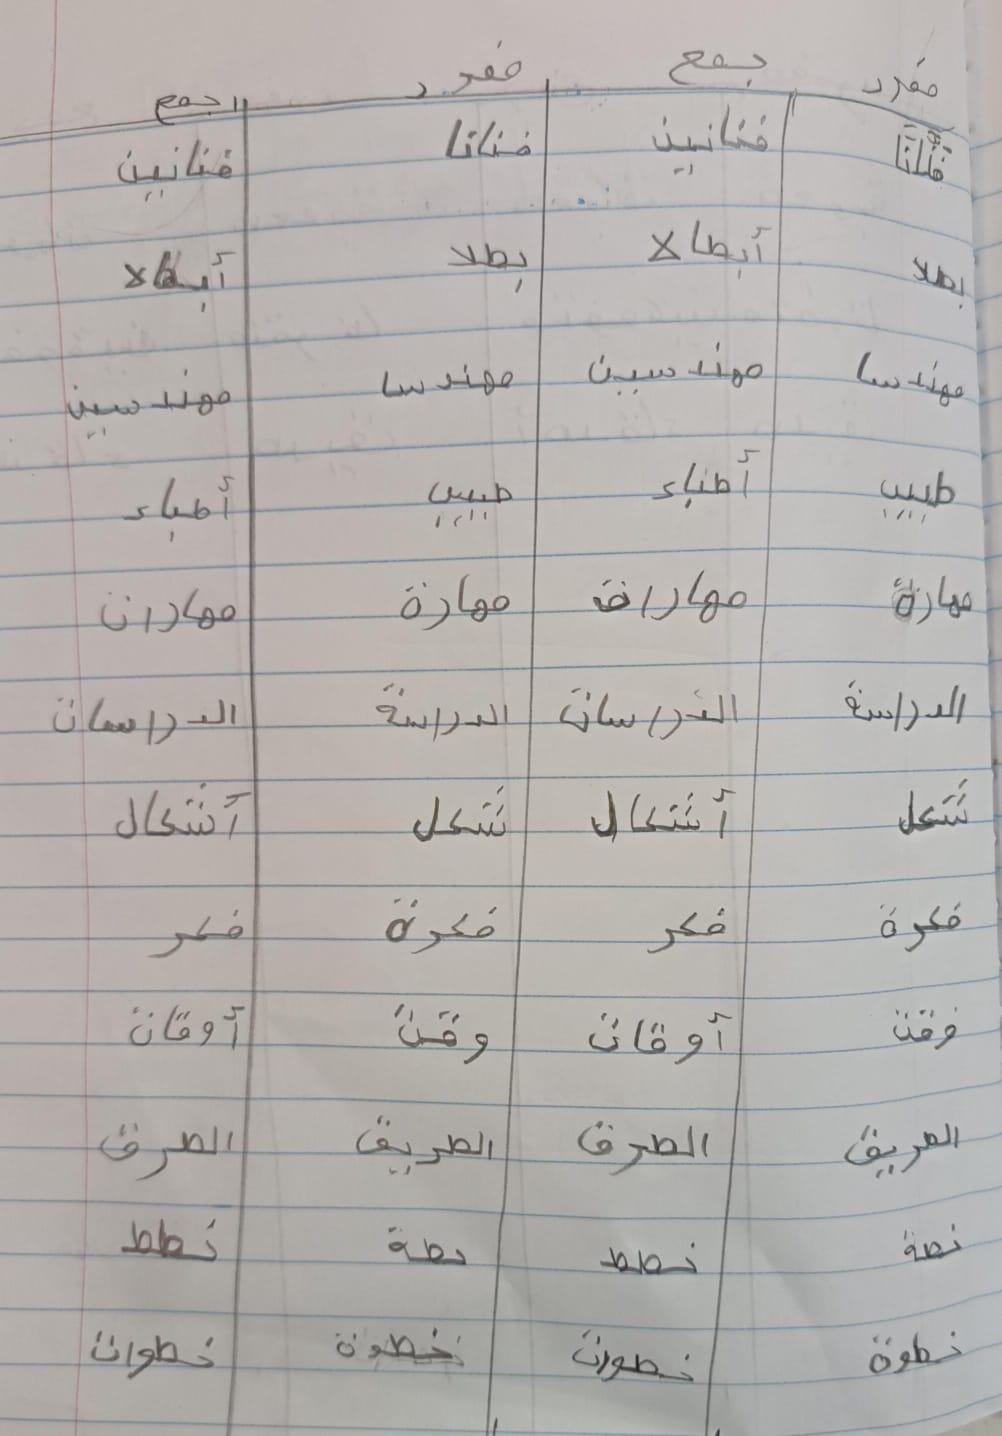 مفرد جمع مفرد جمع
فنانا فنانين فنانا فنانين
بطلا أبطالا بطلا أبطالا
مهندسا مهندسين مهندسا مهندسين
طبيب أطباء طبيب أطباء
مهارة مهارات مهارة مهارات
الدراسة الدراسات الدراسة الدراسات
شكل أشكال شكل أشكال
فكرة فكر فكرة فكر
وقت أوقات وقت أوقات
الطريق الطرق الطريق الطرق
خطة خطط خطة خطط
خطوة خطوات خطوة خطوات